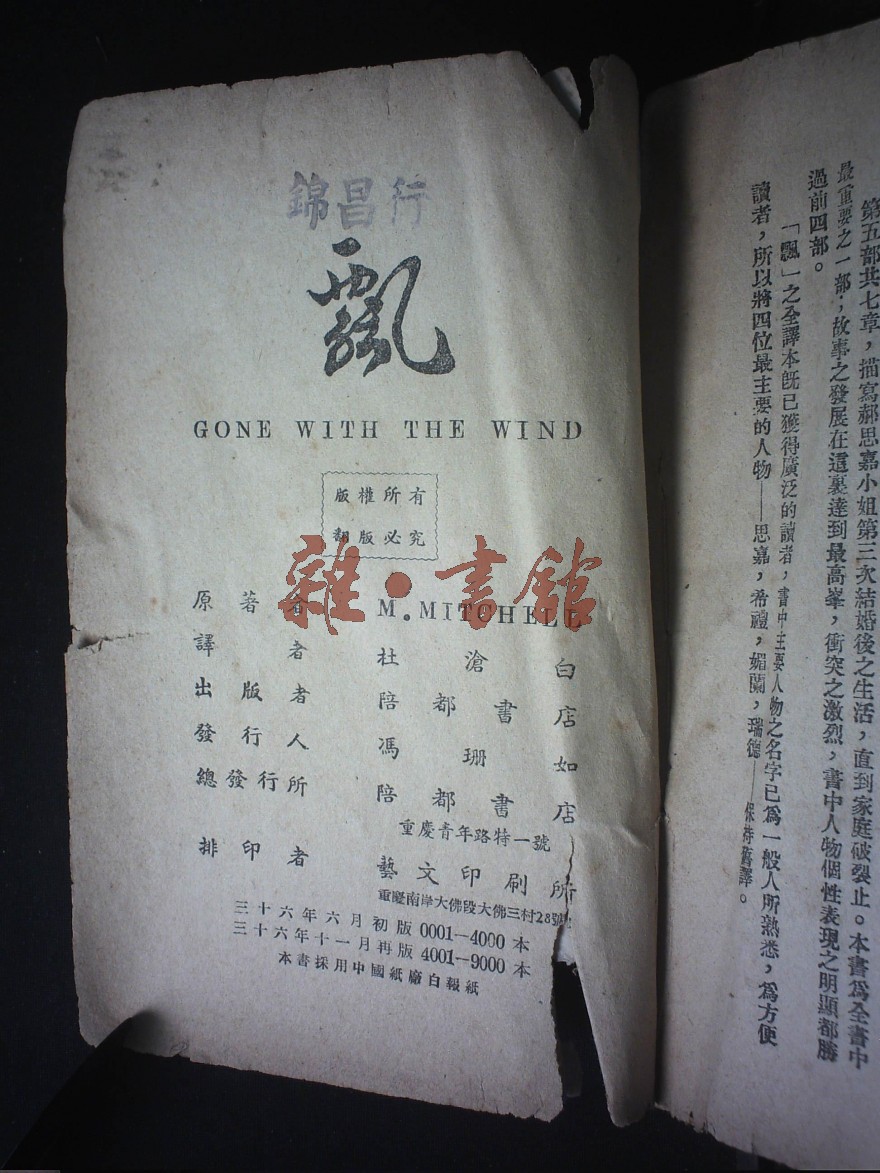 錦昌行
飄
GONE WITH THE WIND
版權所有
翻版必究
雜·書館
原著者 M. MITCHELL
譯者 杜滄白
出版者 陪都書店
發行人 馮珊如
總發行所 陪都書店
重慶青年路特一號
排印者 藝文印刷所
重慶南岸大佛段大佛三村28號
三十六年六月初版 0001—4000 本
三十六年十一月再版 4001—9000 本
本書採用中國紙廠白報紙
第五部共七章，描寫郝思嘉小姐第三次結婚後之生活，直到家庭破裂止。本書爲全書中
最重要之一部，故事之發展在這裏達到最高峯，衝突之激烈，書中人物個性表現之明顯都勝
過前四部。
「飄」之全譯本旣已獲得廣泛的讀者，書中主要人物之名字已爲一般人所熟悉，爲方便
讀者，所以將四位最主要的人物——思嘉，希禮，媚蘭，瑞德——保持舊譯。